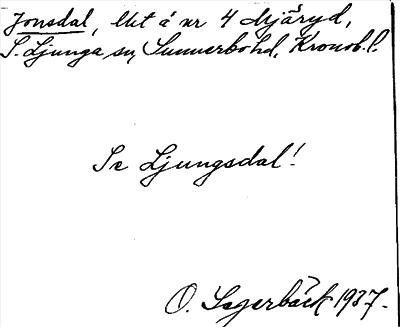 Jonsdal, lht å nr 4 Mjäryd,
S. Ljunga sn, Sunnerbo hd, Kronob. l.
Se Ljungsdal!
O. Lagerbäck 1937.